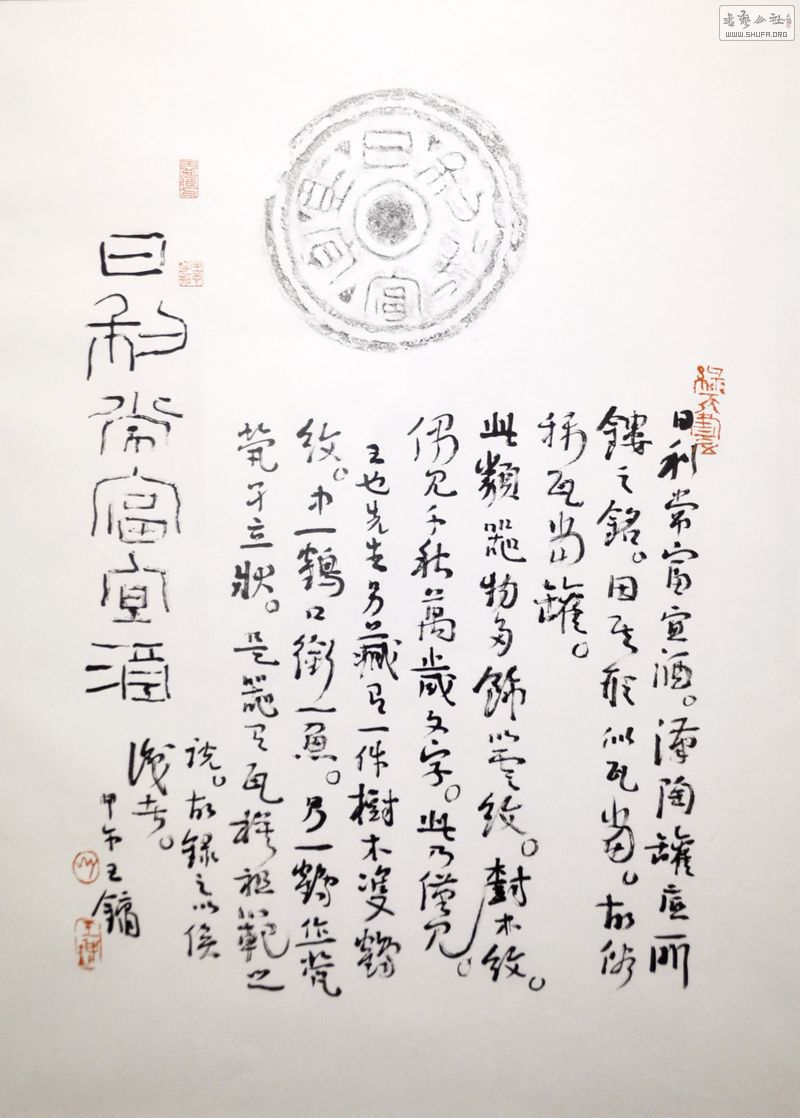 書藝公社
WWW.SHUFA.ORG
日利常富宜酒
日利常富宜酒。漢陶罐底所
鏤之銘。因其形似瓦當。故俗
稱瓦當罐。
此類器物多飾以雲紋。樹木紋。
偶見千秋萬歲文字。此乃僅見。
王也先生另藏有一件樹木雙鶴
紋。中一鶴口銜一魚。另一鶴作煢
煢孑立狀。是器有瓦稱祖範之
說。故錄之以俟
識者。
甲午王鏞